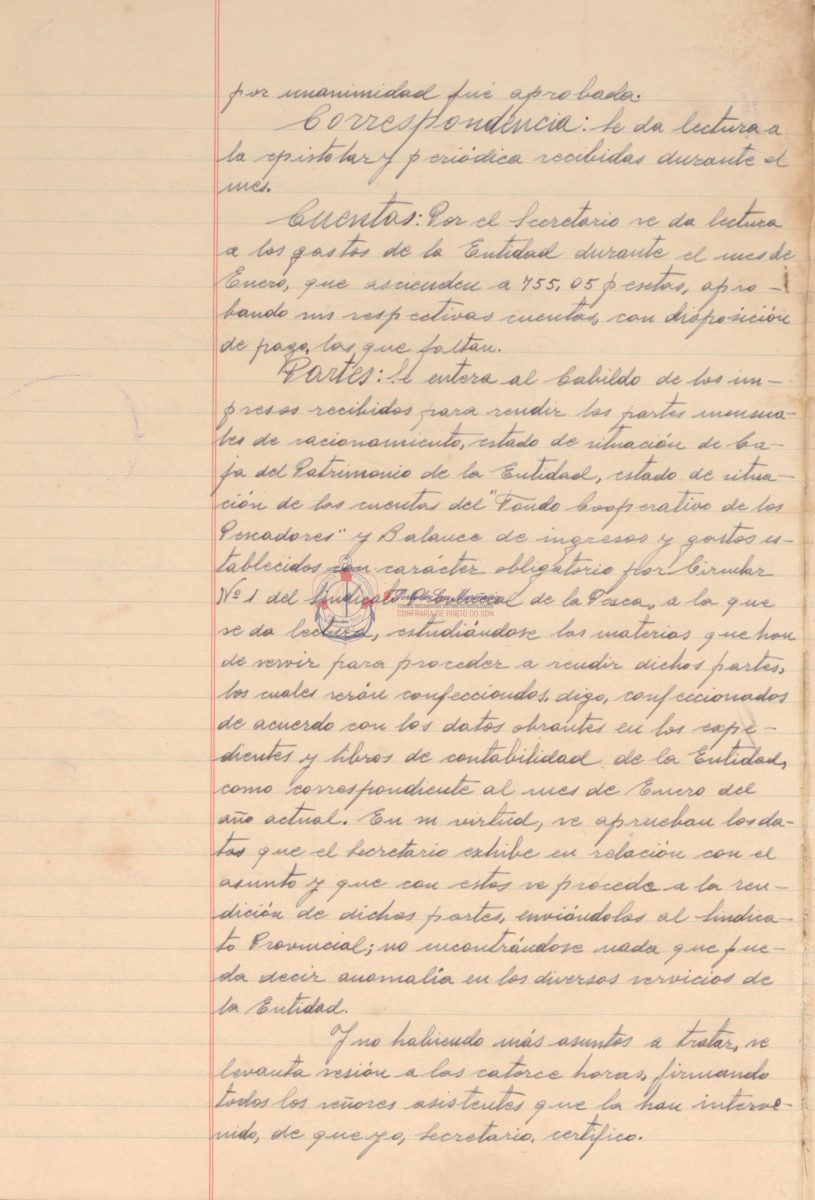 por unanimidad fué aprobada.
Correspondencia: Se da lectura a
la epistolar y periódica recibidas durante el
mes.
Cuentas: Por el Secretario se da lectura
a los gastos de la Entidad durante el mes de
Enero, que ascienden a 755,05 pesetas, apro-
bando sus respectivas cuentas, con disposición
de pago, las que faltan.
Partes: Se entera al Cabildo de los im-
presos recibidos para rendir los partes mensua-
les de racionamiento, estado de situación de Ca-
ja del Patrimonio de la Entidad, estado de situa-
ción de las cuentas del "Fondo Cooperativo de los
Pescadores" y Balance de ingresos y gastos es-
tablecidos con carácter obligatorio por Circular
Nº 1 del Sindicato Provincial de la Pesca, a la que
se da lectura, estudiándose las materias que han
de servir para proceder a rendir dichos partes,
los cuales serán confecciondos, digo, confeccionados
de acuerdo con los datos obrantes en los expe-
dientes y libros de contabilidad de la Entidad,
como correspondiente al mes de Enero del
año actual. En su virtud, se aprueban los da-
tos que el Secretario exhibe en relación con el
asunto y que con estos se procede a la ren-
dición de dichos partes, enviándolos al Sindica-
to Provincial; no encontrándose nada que pue-
da decir anomalía en los diversos servicios de
la Entidad.
Y no habiendo más asuntos a tratar, se
levanta sesión a las catorce horas, firmando
todos los señores asistentes que la han interve-
nido, de que yo, Secretario, certifico.
CONFRARÍA DE PORTO DO SON